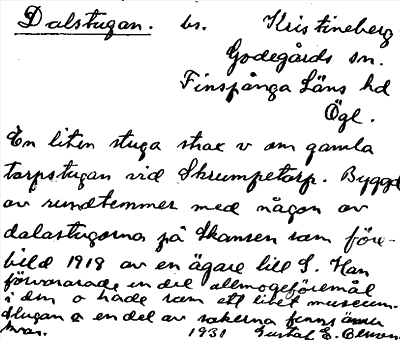 Dalstugan. bs. Kristineberg
Godegårds sn.
Finspånga Läns hd
Ögl.
En liten stuga strax v om gamla
torpstugan vid Skrumpetorp. Byggd
av rundtemmer med någon av
dalastugorna på Skansen som före-
bild 1918 av en ägare till S. Han
förvarade en del allmogeföremål
i den o hade som ett litet museum.
Stugan o en del av sakerna finns ännu
kvar. 1931 Gustaf E. Olsson